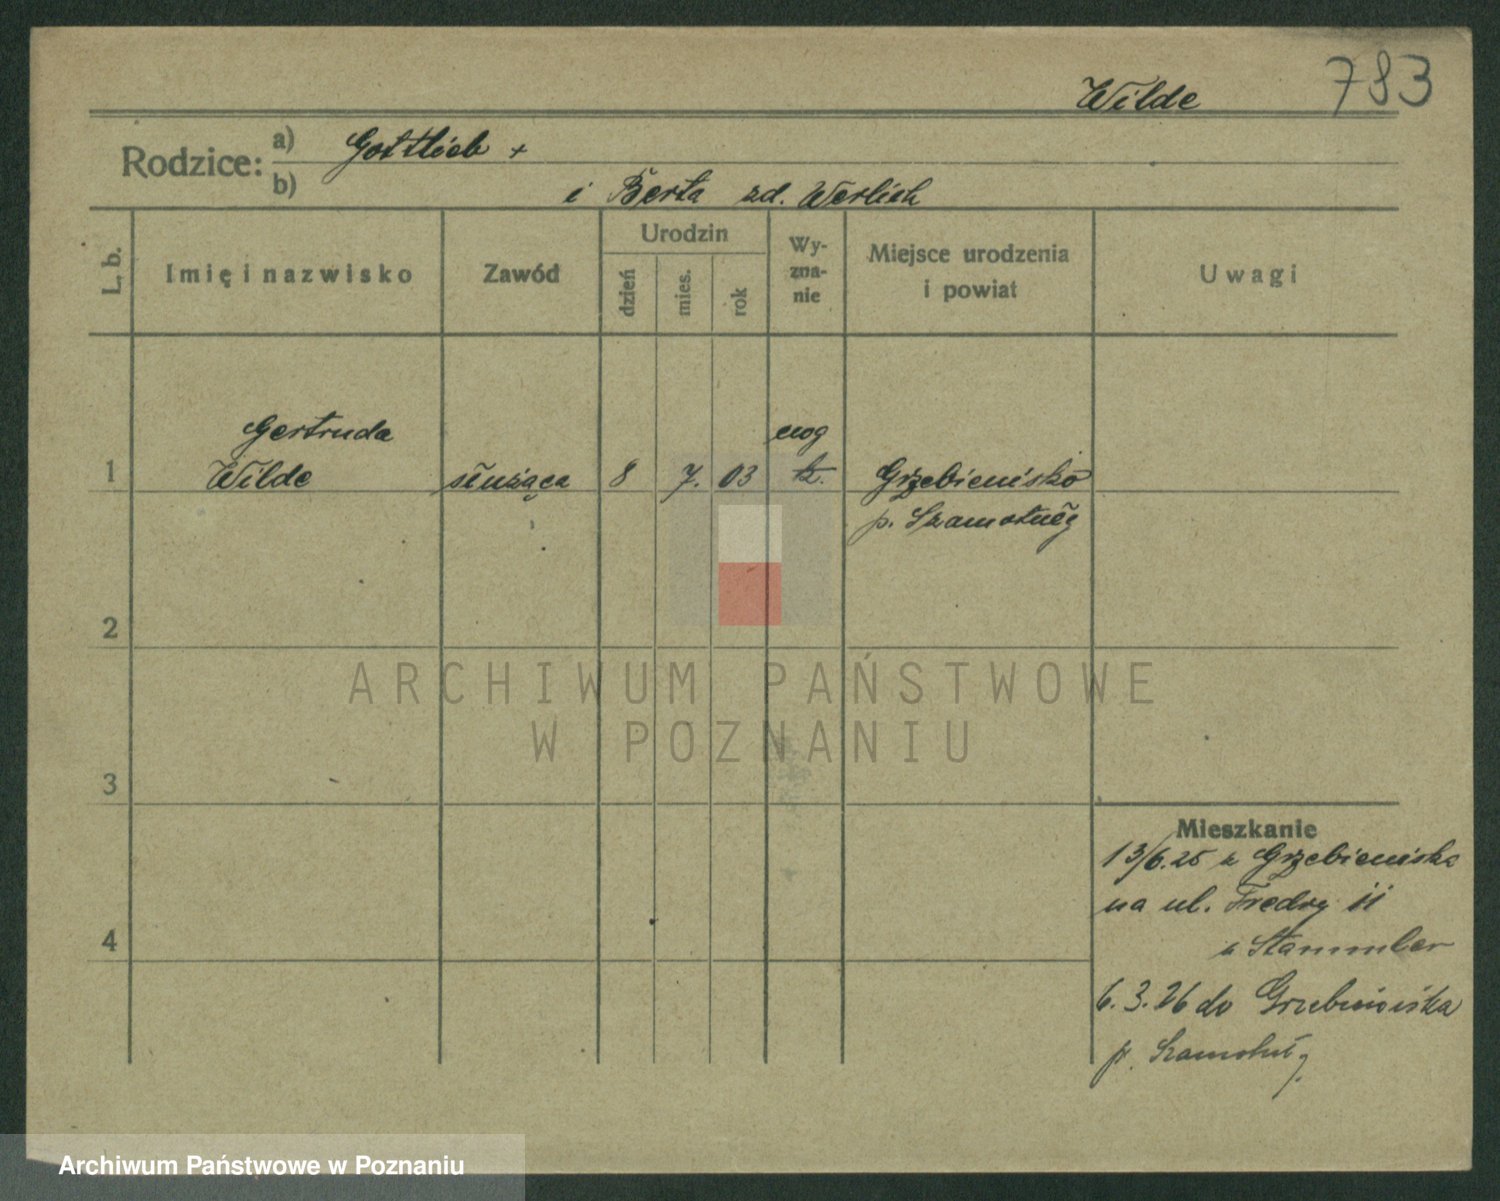 Wilde 783
Rodzice: a) Gottlieb +
b) i Berta zd. Werlich
L. b.
Imię i nazwisko
Zawód
Urodzin
dzień
mies.
rok
Wy-
zna-
nie
Miejsce urodzenia
i powiat
Uwagi
1
Gertruda
Wilde
służąca
8
7.
03
Grzebienisko
p. Szamotuły
2
3
4
Mieszkanie
13/6.25 z Grzebieniska
na ul. Fredry 11
u Stammler
6.3.26 do Grzebieniska
p. Szamotuły
ARCHIWUM PAŃSTWOWE
W POZNANIU
Archiwum Państwowe w Poznaniu